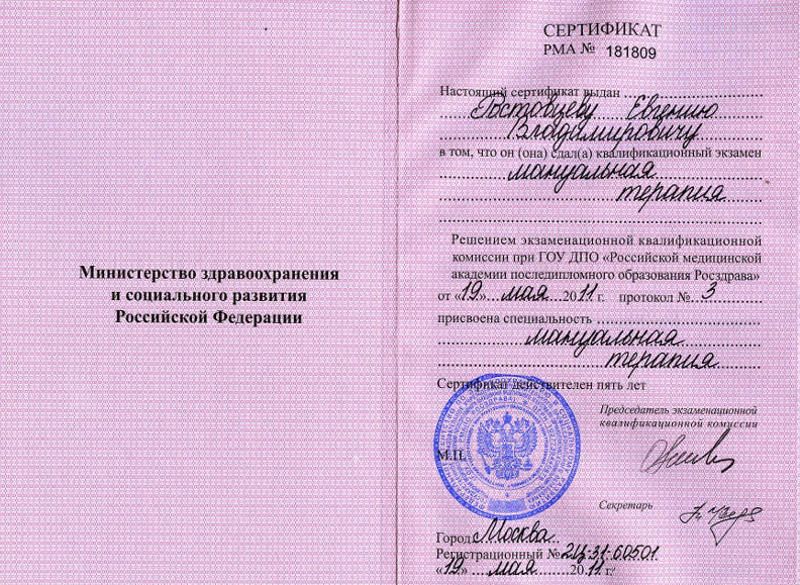 Министерство здравоохранения
и социального развития
Российской Федерации
СЕРТИФИКАТ
РМА № 181809
Настоящий сертификат выдан
Ростовцеву Евгению
Владимировичу
в том, что он (она) сдал(а) квалификационный экзамен
мануальная
терапия
Решением экзаменационной квалификационной
комиссии при ГОУ ДПО «Российской медицинской
академии последипломного образования Росздрава»
от «19» мая 2011 г. протокол № 3
присвоена специальность
мануальная
терапия
Сертификат действителен пять лет
Председатель экзаменационной
квалификационной комиссии
М.П.
Секретарь
Город Москва
Регистрационный № 2Ц-31-60501
«19» мая 2011 г.